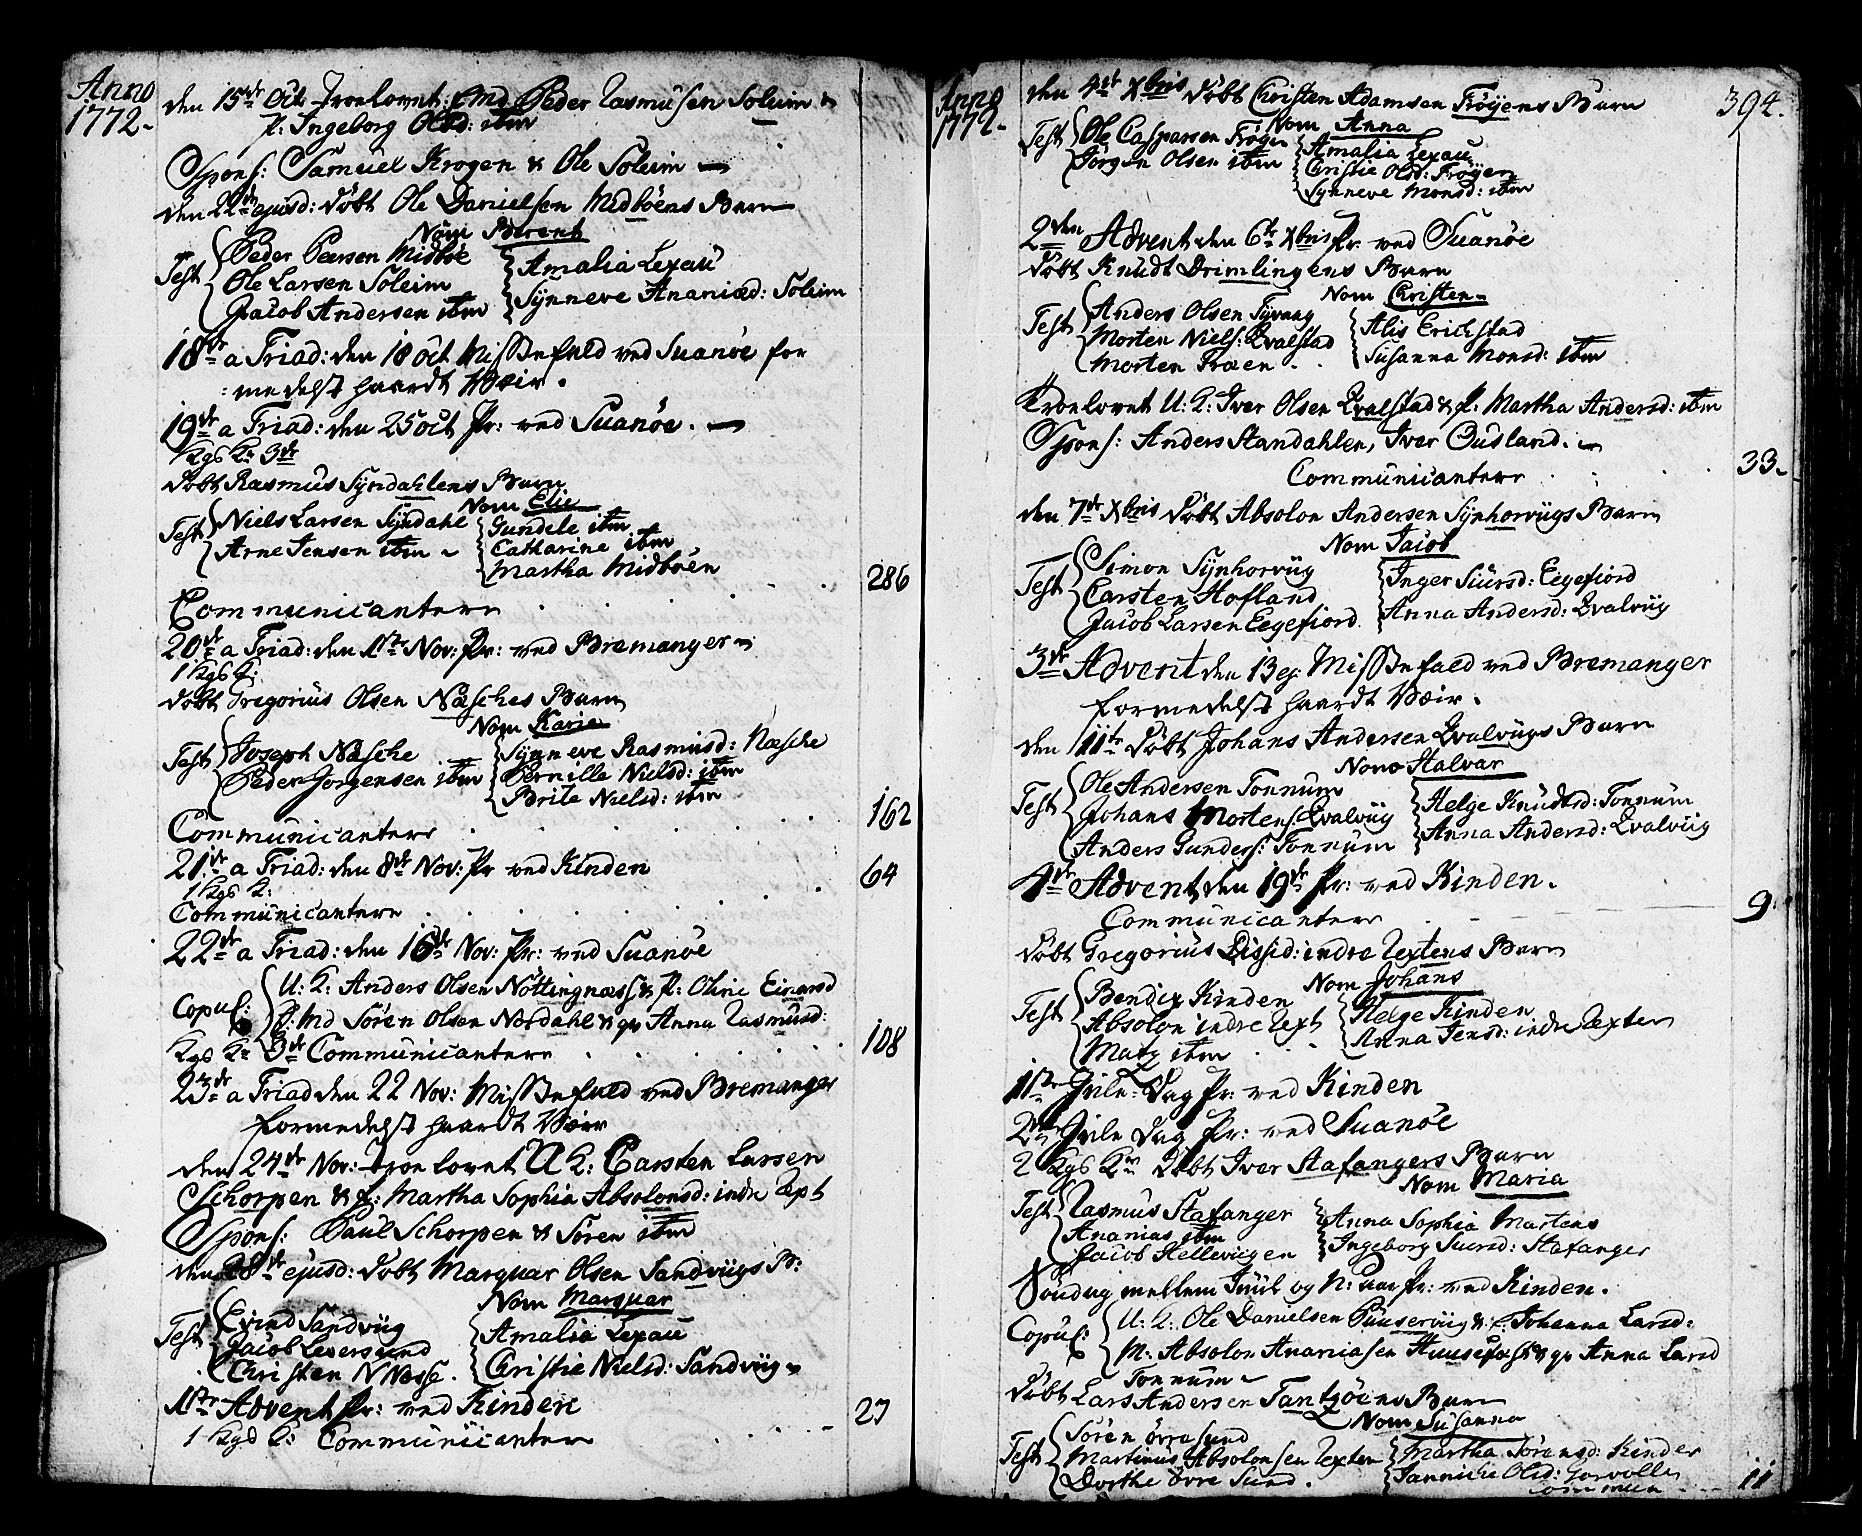 Anno
1772-
den 15de Oct. Troelovet: Emd Peder Rasmusen Soleim &
P: Ingeborg Olsd: ibm
Spons: Samuel Krogen & Ole Soleim -
den 22de ejusd: Döbt Ole Danielsen Midböens Barn
Nom Berent
Test Peder Pearsen Midböe
Ole Larsen Soleim
Jacob Andersen ibm
Amalia Lexau
Synneve Ananiæd: Soleim
18de a Triad: den 18 Oct Missefald ved Suanöe for
:medelst haardt Væir.
19de a Triad: den 25 Oct Pr: ved Suanöe. -
Kgs K 3de
Döbt Rasmus Syndahlens Barn
Nom Elie
Test Niels Larsen Syndahl
Arne Jensen ibm
Gundele ibm
Catharine ibm
Martha Midböen
Communicantere 286
20de a Triad: den 1ste Nov: Pr: ved Bremanger
1 Kgs K:
Döbt Gregorius Olsen Næsches Barn
Nom Karie
Test Joseph Næsche
Peder Jorgensen ibm
Synneve Rasmusd: Næsche
Pernille Nielsd: ibm
Brite Nielsd: ibm
Communicantere 162
21de a Triad: den 8de Nov: Pr ved Kinden
1 Kgs K:
Communicantere 64
22de a Triad: den 15de Nov: Pr: ved Suanöe
Copul: U: K: Anders Olsen Nöttingnæss & P: Oline Einersd
E: Md Sören Olsen Nordahl & qv Anna Rasmusd:
Kgs K 3de Communicantere 108
23de a Triad den 22 Nov: Missefald ved Bremanger
formedelst haardt Væir
den 24de Nov: Troelovet U K: Carsten Larsen
Schorpen & P: Martha Sophia Absolonsd: indre Rext
Spons: Paul Schorpen & Sören ibm
den 28de ejusd: Döbt Marquar Olsen Sandviigs B:
Nom Marquar
Test Evind Sandviig
Jacob Leversund
Christen N Næsse.
Amalia Lexau
Christie Nielsd: Sandviig
1ste Advent Pr: ved Kinden
1 Kgs K: Communicantere 27
Anno
1772-
394.
den 4de Xbris Döbt Christen Adamsen Fröyens Barn
Nom Anna
Test Ole Casparsen Fröyen
Jörgen Olsen ibm
Amalia Lexau
Christie Olsd: Fröyen
Synneve Monsd: ibm
2den Advent den 6te Xbris Pr: ved Suanöe
Döbt Knudt Drimlingens Barn
Nom Christen
Test Anders Olsen
Morten Niels: Qvalstad
Morten Træen.
Alis Erichstad
Susanna Monsd: ibm
Troelovet U: K: Iver Olsen Qvalstad & P: Martha Andersd: ibm
Spons: Anders Standahlen, Iver Ousland.
Communicantere 33
den 7de Xbris Döbt Absolon Andersen Synhorviigs Barn
Nom Jacob
Test Simon Synhorviig
Carsten Hofland
Jacob Larsen Eegefiord.
Inger Siursd: Eegefiord
Anna Andersd: Qvalviig
3de Advent den 13 ej: Missefald ved Bremanger
formedelst haardt Væir.
den 11te Döbt Johans Andersen Qvalviigs Barn
Nom Halvar
Test Ole Andersen Tonnum
Johans Mortens: Qvalviig
Anders Gunders: Tonnum
Helge Knudtsd: Tonnum
Anna Andersd: Qvalviig
4de Advent, den 19de Pr: ved Kinden.
Communicantere 9
Döbt Gregorius indre Rextens Barn
Nom Johans
Test Bendix Kinden
Absolon indre Rext
Matz ibm
Helge Kinden
Anna Jensd: indre Rexten
1ste Jule Dag Pr: ved Kinden
2den Jule Dag Pr: ved Suanöe
2 Kgs K Döbt Iver Stafangers Barn
Nom Maria
Test Rasmus Stafanger
Ananias ibm
Jacob Helleviigen
Anna Sophia Martens
Ingeborg Siursd: Stafanger
Söndag mellem Juul og N: Aar Pr: ved Kinden.
Copul: U: K: Ole Danielsen & P: Johanna Larsd:
M: Absolon Ananiasen & qv Anna Larsd
Tonnum
Döbt Lars Andersen Tantzöens Barn
Nom Susanna
Test Sören övre Sund
Martinus Absolonsen Rexten
Dorthe övre Sund.
Martha Sörensd: Kinden
Jannicke Olsd:
Commun 11